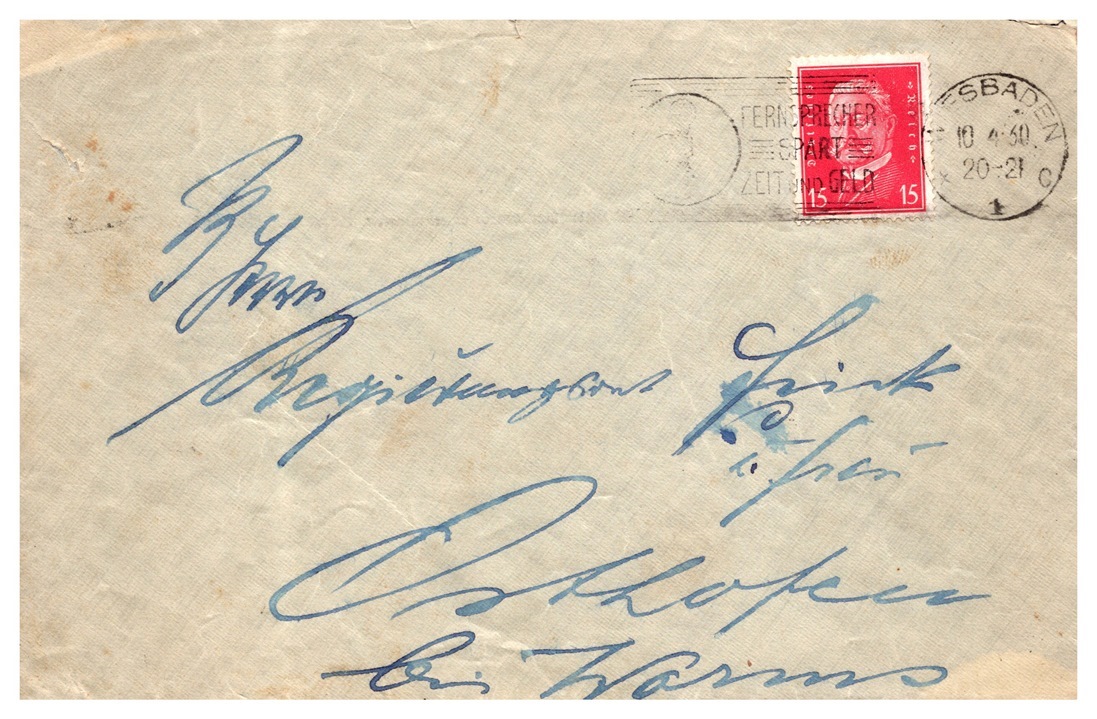 FERNSPRECHER
SPART
ZEIT UND GELD
Deutsches Reich
15 15
WIESBADEN
10.4.30.
20-21
* 1 c
Herrn
Regierungsrat Frick
u. Frau
Osthofen
bei Worms